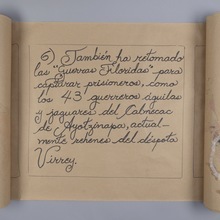 6) También ha retomado
las "Guerras Floridas" para
capturar prisioneros, como
los 43 guerreros águilas
y jaguares del Calmecac
de Ayotzinapa, actual-
mente rehenes del déspota
Virrey.